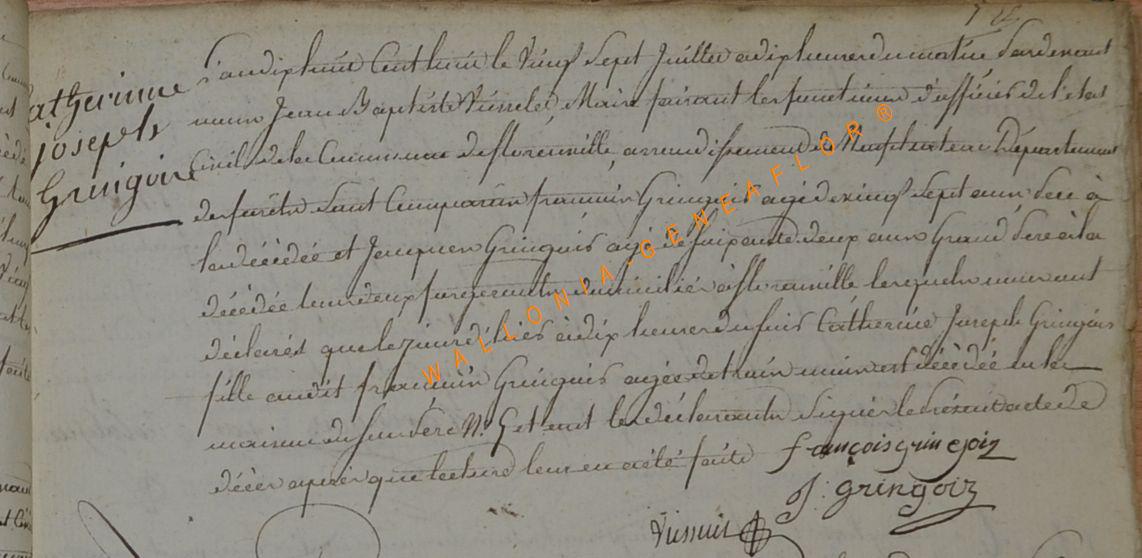 Catherinne
joseph
Gringoire
L'an dix huit Cent huit le Vingt Sept Juillet a dix heures du matin Pardevant
nous Jean Baptiste Maire faisant les fonctions d'officier de l'etat
Civil de la Commune de florenville, arrondissement de Neufchateau Département
des forêts sont Comparus françois Gringois agé de vingt Sept ans Pere à
la décédée et Jacques Gringois agé de Soixante deux ans Grand Pere à la
décédée leurs deux domiciliés à florenville lesquels nous ont
déclarés que le jour d'hiés à dix heures du soir Cathérine Joseph Gringois
fille audit françois Gringois agée de trois mois est décédée en la
maison de son Pere N. 6 et ont les déclarants Signés le Présent acte de
décès après que lecture leur en a été faite françois gringoiz
J. gringoiz
WALLONIA-GENEAFLOR®